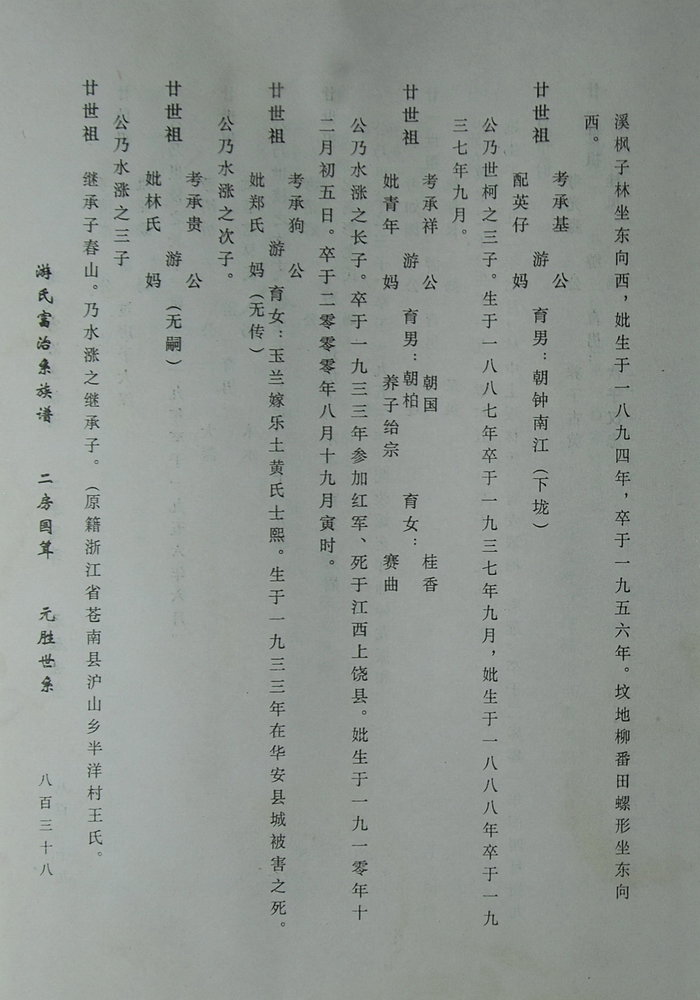 溪枫子林坐东向西，妣生于一八九四年，卒于一九五六年。坟地柳番田螺形坐东向
西。
廿世祖 考承基 游 公 育男：朝钟南江（下垅）
配英仔 妈
公乃世柯之三子。生于一八八七年卒于一九三七年九月，妣生于一八八八年卒于一九
三七年九月。
廿世祖 考承祥 游 公 育男：朝柏 朝国 养子给宗 育女： 桂香 赛曲
妣青年 妈
公乃水涨之长子。卒于一九三三年参加红军、死于江西上饶县。妣生于一九一零年十
二月初五日。卒于二零零零年八月十九月寅时。
廿世祖 考承狗 游 公 育女：玉兰嫁乐土黄氏士熙。生于一九三三年在华安县城被害之死。
妣郑氏 妈（无传）
公乃水涨之次子。
廿世祖 考承贵 游 公（无嗣）
妣林氏 妈
公乃水涨之三子
廿世祖 继承子春山。乃水涨之继承子。（原籍浙江省苍南县沪山乡半洋村王氏。
游氏富治系族谱 二房国茸 元胜世系 八百三十八